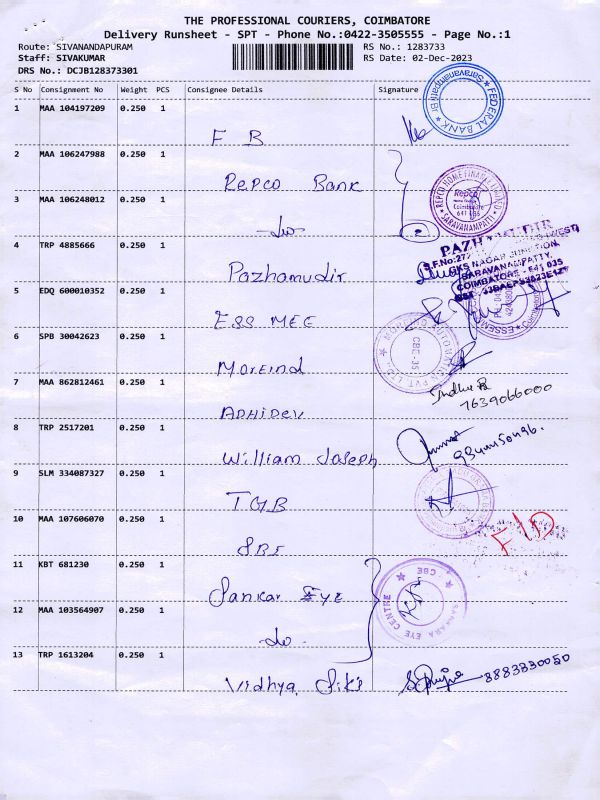 THE PROFESSIONAL COURIERS, COIMBATORE
Delivery Runsheet - SPT - Phone No.:0422-3505555 - Page No.:1
Route: SIVANANDAPURAM RS No.: 1283733
Staff: SIVAKUMAR RS Date: 02-Dec-2023
DRS No.: DCJB128373301
S No Consignment No Weight PCS Consignee Details Signature
FEDERAL BANK
Saravanampatti Br
1 MAA 104197209 0.250 1
F B
2 MAA 106247988 0.250 1
Repco Bank
REPCO HOME FINANCE LIMITED
Repco
Coimbatore
641 035
SARAVANAMPATTI
3 MAA 106248012 0.250 1
-do-
4 TRP 4885666 0.250 1
Pazhamudir
PAZHAMUDIR
S.F.No:277
SKS NAGAR JUNCTION,
SARAVANAMPATTY,
COIMBATORE - 641 035
5 EDQ 600010352 0.250 1
ESS MEE
6 SPB 30042623 0.250 1
Moreind
CBE-35
7 MAA 862812461 0.250 1
ADHIDEV
Indhu R
7639066000
8 TRP 2517201 0.250 1
William Joseph
9 SLM 334087327 0.250 1
TGB
10 MAA 107606070 0.250 1
SBI
11 KBT 681230 0.250 1
Sankar Eye
SANKARA EYE CENTRE
CBE
12 MAA 103564907 0.250 1
-do-
13 TRP 1613204 0.250 1
Vidhya
8883330050